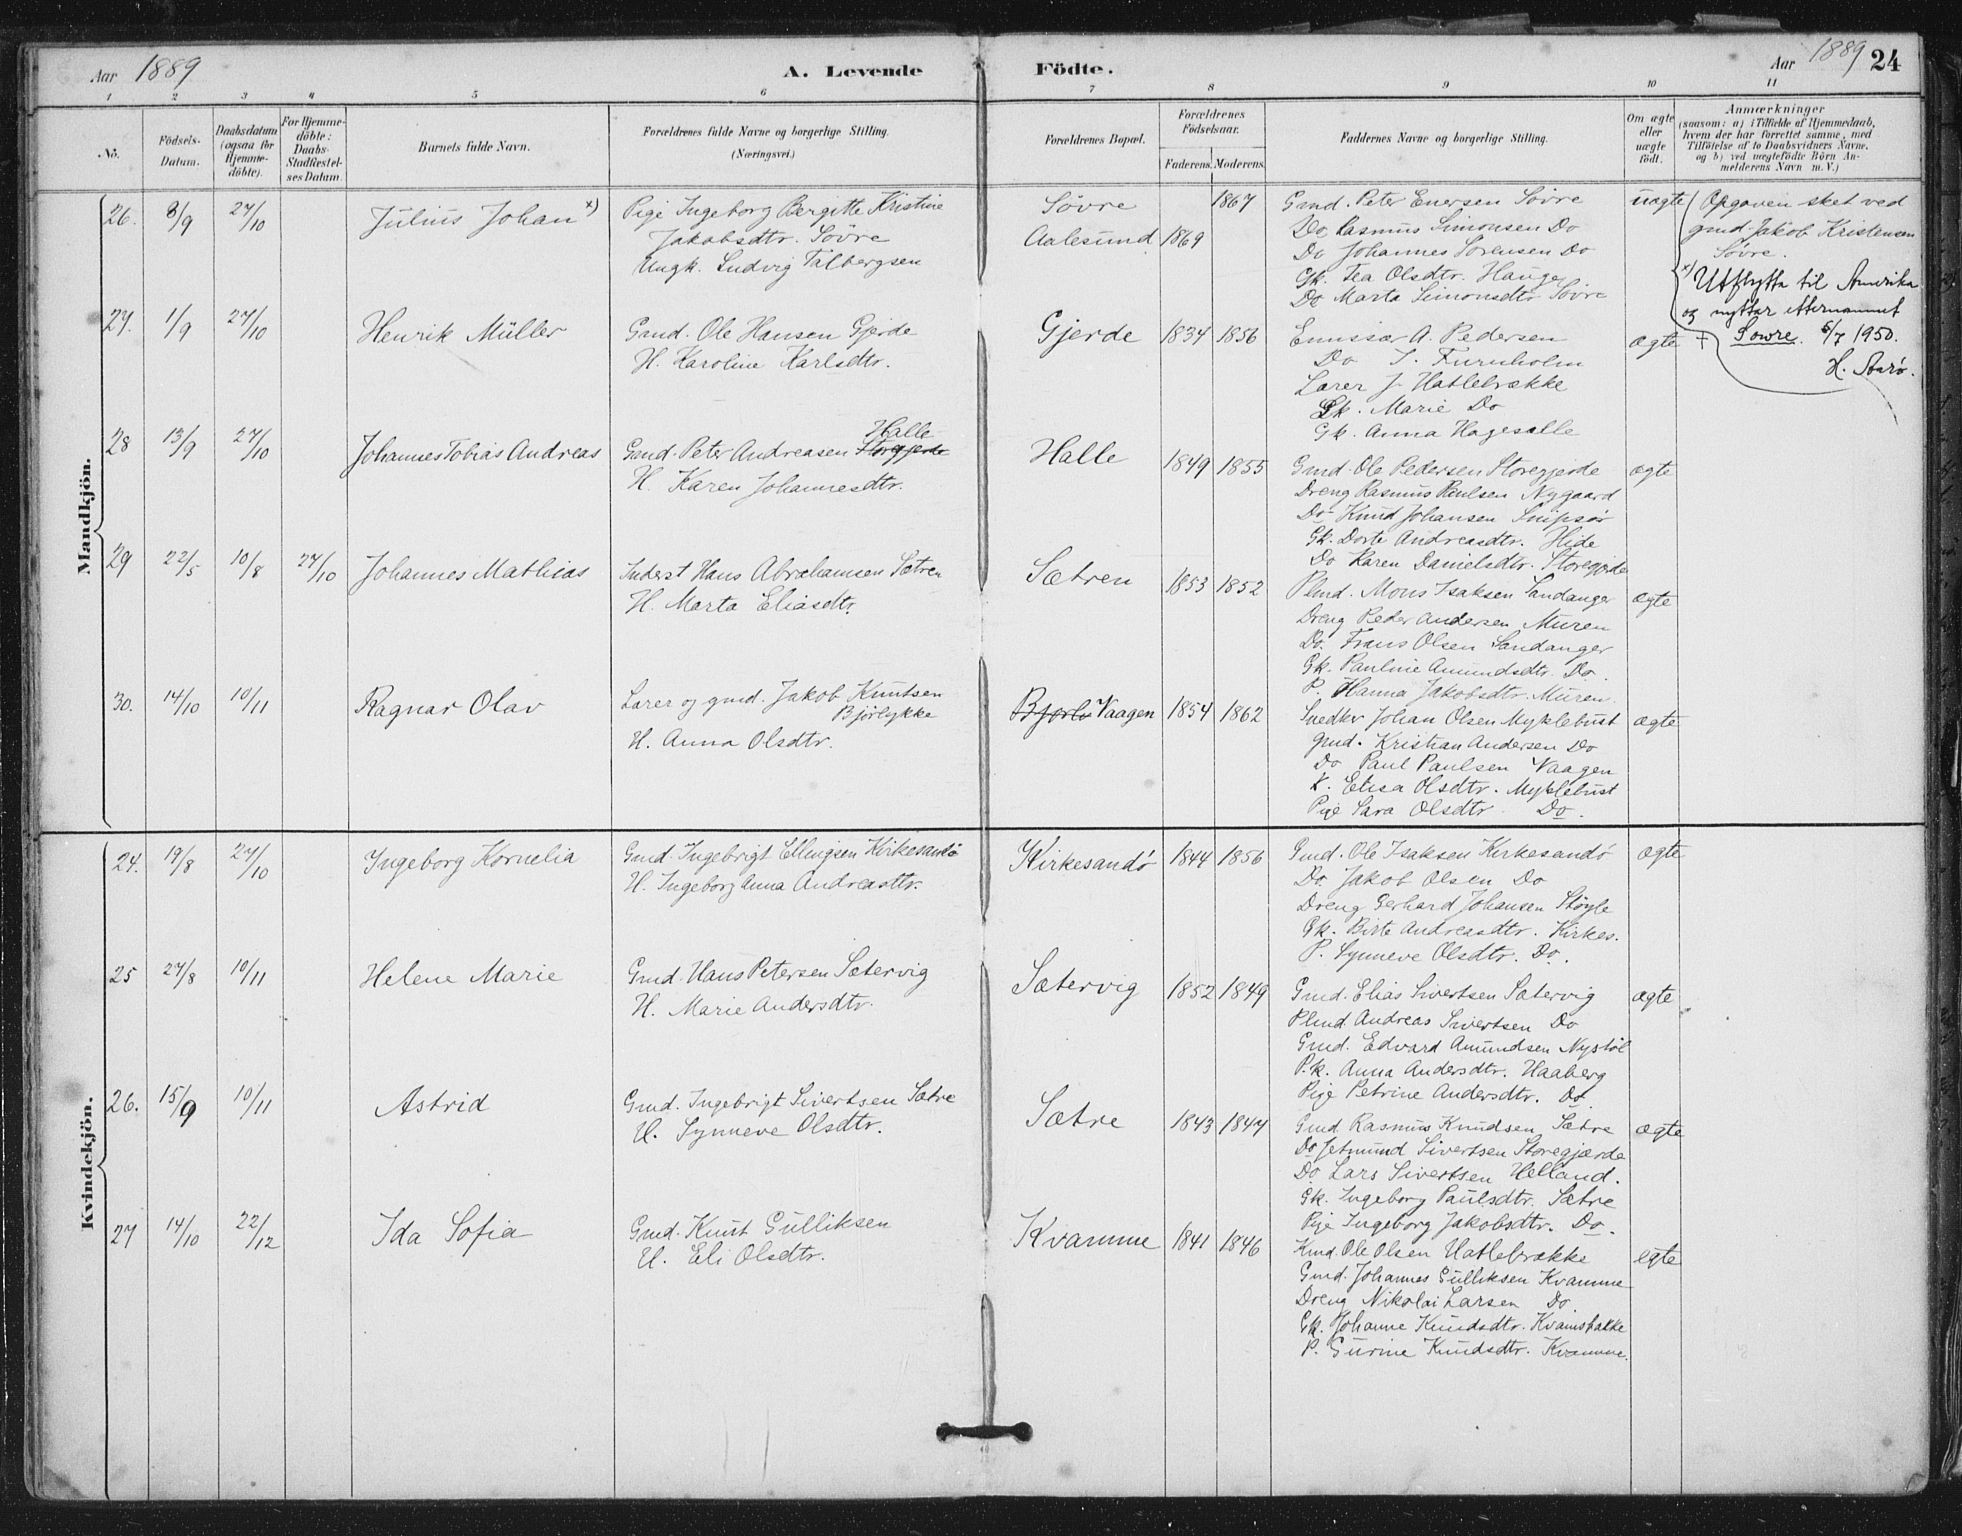 Aar 1889 A. Levende Födte. Aar 1889 24
1 2 3 4 5 6 7 8 9 10 11
No.
Födsels-Datum.
Daabsdatum (ogsaa for Hjemme-döbte).
For Hjemme-döbte: Daabs-Stadfæstel-ses Datum.
Barnets fulde Navn.
Forældrenes fulde Navne og borgerlige Stilling.
(Næringsvei.)
Forældrenes Bopæl.
Forældrenes Födselsaar.
Faderens. Moderens.
Faddernes Navne og borgerlige Stilling.
Om ægte eller uægte födt.
Anmærkninger
(saasom: a) i Tilfælde af Hjemmedaab,
hvem der har forrettet samme, med
Tilföielse af to Daabsvidners Navne.
og b) ved uægtefödte Börn An-
melderens Navn m. V.)
Mandkjön.
26. 8/9 27/10 Julius Johan x) Pige Ingeborg Bergitte Kristine Søvre 1867 Gmd. Peter Enersen Søvre uægte
Jakobsdtr. Søvre Aalesund 1869 Do Rasmus Simonsen Do
Ungk. Ludvig Talbergsen Do Johannes Sørensen Do
Gk. Tea Olsdtr. Hauge
Do Marta Simonsdtr Søvre
Opgaven sket ved
gmd. Jakob Kristensen
Søvre.
x) Utflytta til Amerika
og nyttar etternamnet
Sowre. 5/7 1950.
H. Aarø.
27. 1/9 27/10 Henrik Müller Gmd. Ole Hansen Gjerde Gjerde 1834 1856 Emissær A. Pedersen ægte +
H. Karoline Karlsdtr. Do I. Furnholm
Lærer J. Hatlebrække
Gk. Marie Do
Gk. Anna Hagesalle
28 13/9 27/10 Johannes Tobias Andreas Gmd. Peter Andreasen Storegjerde Halle Halle 1849 1855 Gmd. Ole Pedersen Storegjerde ægte
H. Karen Johannesdtr. Dreng Rasmus Paulsen Nygaard
Do Knud Johansen Snipsør
Gk. Dorte Andreasdtr. Hide
Do Karen Danielsdtr. Storegjerde
29 22/5 10/8 27/10 Johannes Mathias Inderst Hans Abrahamsen Sætren Sætren 1853 1852 Plmd. Mons Isaksen Sandanger ægte
H. Marta Eliasdtr. Dreng Peder Andersen Muren
Do. Frans Olsen Sandanger
Gk. Pauline Amundsdtr. Do.
P. Hanna Jakobsdtr. Muren
30. 14/10 10/11 Ragnar Olav Lærer og gmd. Jakob Knutsen Bjorlo Vaagen 1854 1862 Snedker Johan Olsen Myklebust ægte
Bjørlykke
H. Anna Olsdtr. gmd. Kristian Andersen Do
Do Paul Paulsen Vaagen
K. Elisa Olsdtr. Myklebust
Pige Sara Olsdtr Do.
Kvindekjön.
24. 19/8 27/10 Ingeborg Kornelia Gmd. Ingebrigt Ellingsen Kirkesandø Kirkesandø 1844 1856 Gmd. Ole Isaksen Kirkesandø ægte
H. Ingeborg Anna Andreasdtr. Do. Jakob Olsen Do
Dreng Gerhard Johansen Støyle
Gk. Birte Andreasdtr. Kirkes.
P. Synneve Olsdtr. Do.
25 27/8 10/11 Helene Marie Gmd. Hans Petersen Sætervig Sætervig 1852 1849 Gmd. Elias Sivertsen Sætervig ægte
H. Marie Andersdtr. Plmd. Andreas Sivertsen Do
Gmd. Edvard Amundsen Nystøl
P.k. Anna Andersdtr. Haaberg
Pige Petrine Andersdtr. Do.
26. 15/9 10/11 Astrid Gmd. Ingebrigt Sivertsen Sætre Sætre 1843 1847 Gmd Rasmus Knudsen Sætre ægte
H. Synneve Olsdtr. Do Jetmund Sivertsen Storegjærde
Do Lars Sivertsen Helland.
Gk. Ingeborg Paulsdtr. Sætre
Pige Ingeborg Jakobsdtr. Do.
27 14/10 22/12 Ida Sofia Gmd. Knut Gulliksen Kvamme 1841 1846 Kmd. Ole Olsen Hatlebrække egte
H. Eli Olsdtr. Gmd. Johannes Gulliksen Kvamme
Dreng Nikolai Larsen Do.
Gk. Johanne Knudsdtr. Kvamsbakke
P. Gurine Knudsdtr. Kvamme.